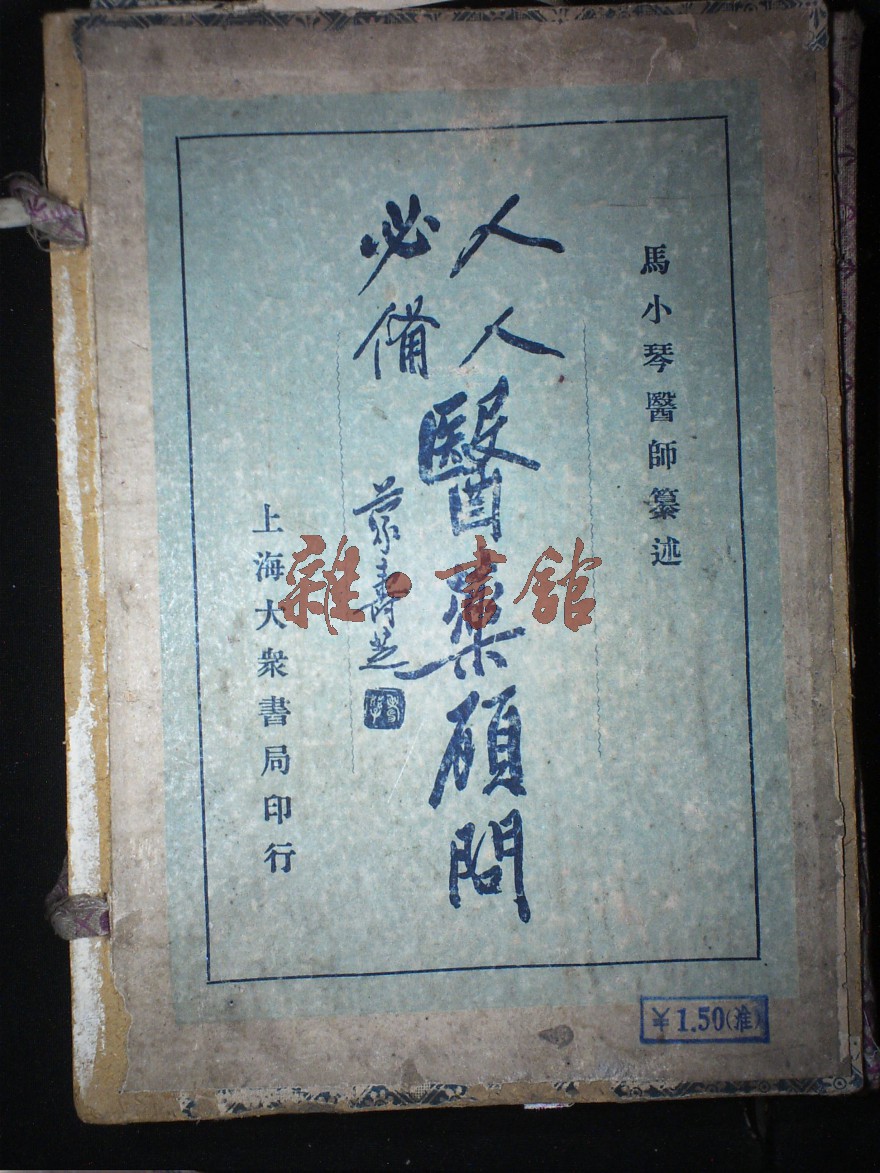 馬小琴醫師纂述
人人
必備
醫藥顧問
上海大衆書局印行
雜·書館
¥1.50(淮)